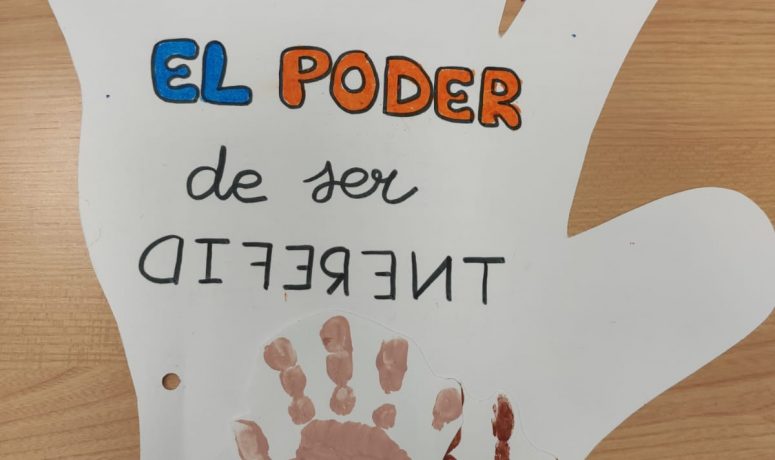 EL PODER
de ser
DIFERENT